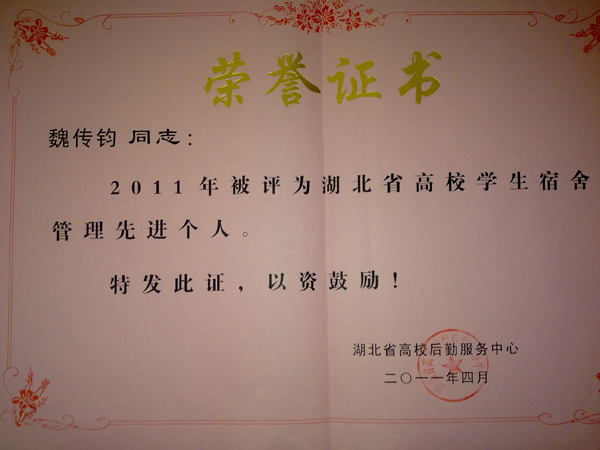 荣誉证书
魏传钧 同志:
2011年被评为湖北省高校学生宿舍
管理先进个人。
特发此证,以资鼓励!
湖北省高校后勤服务中心
二〇一一年四月